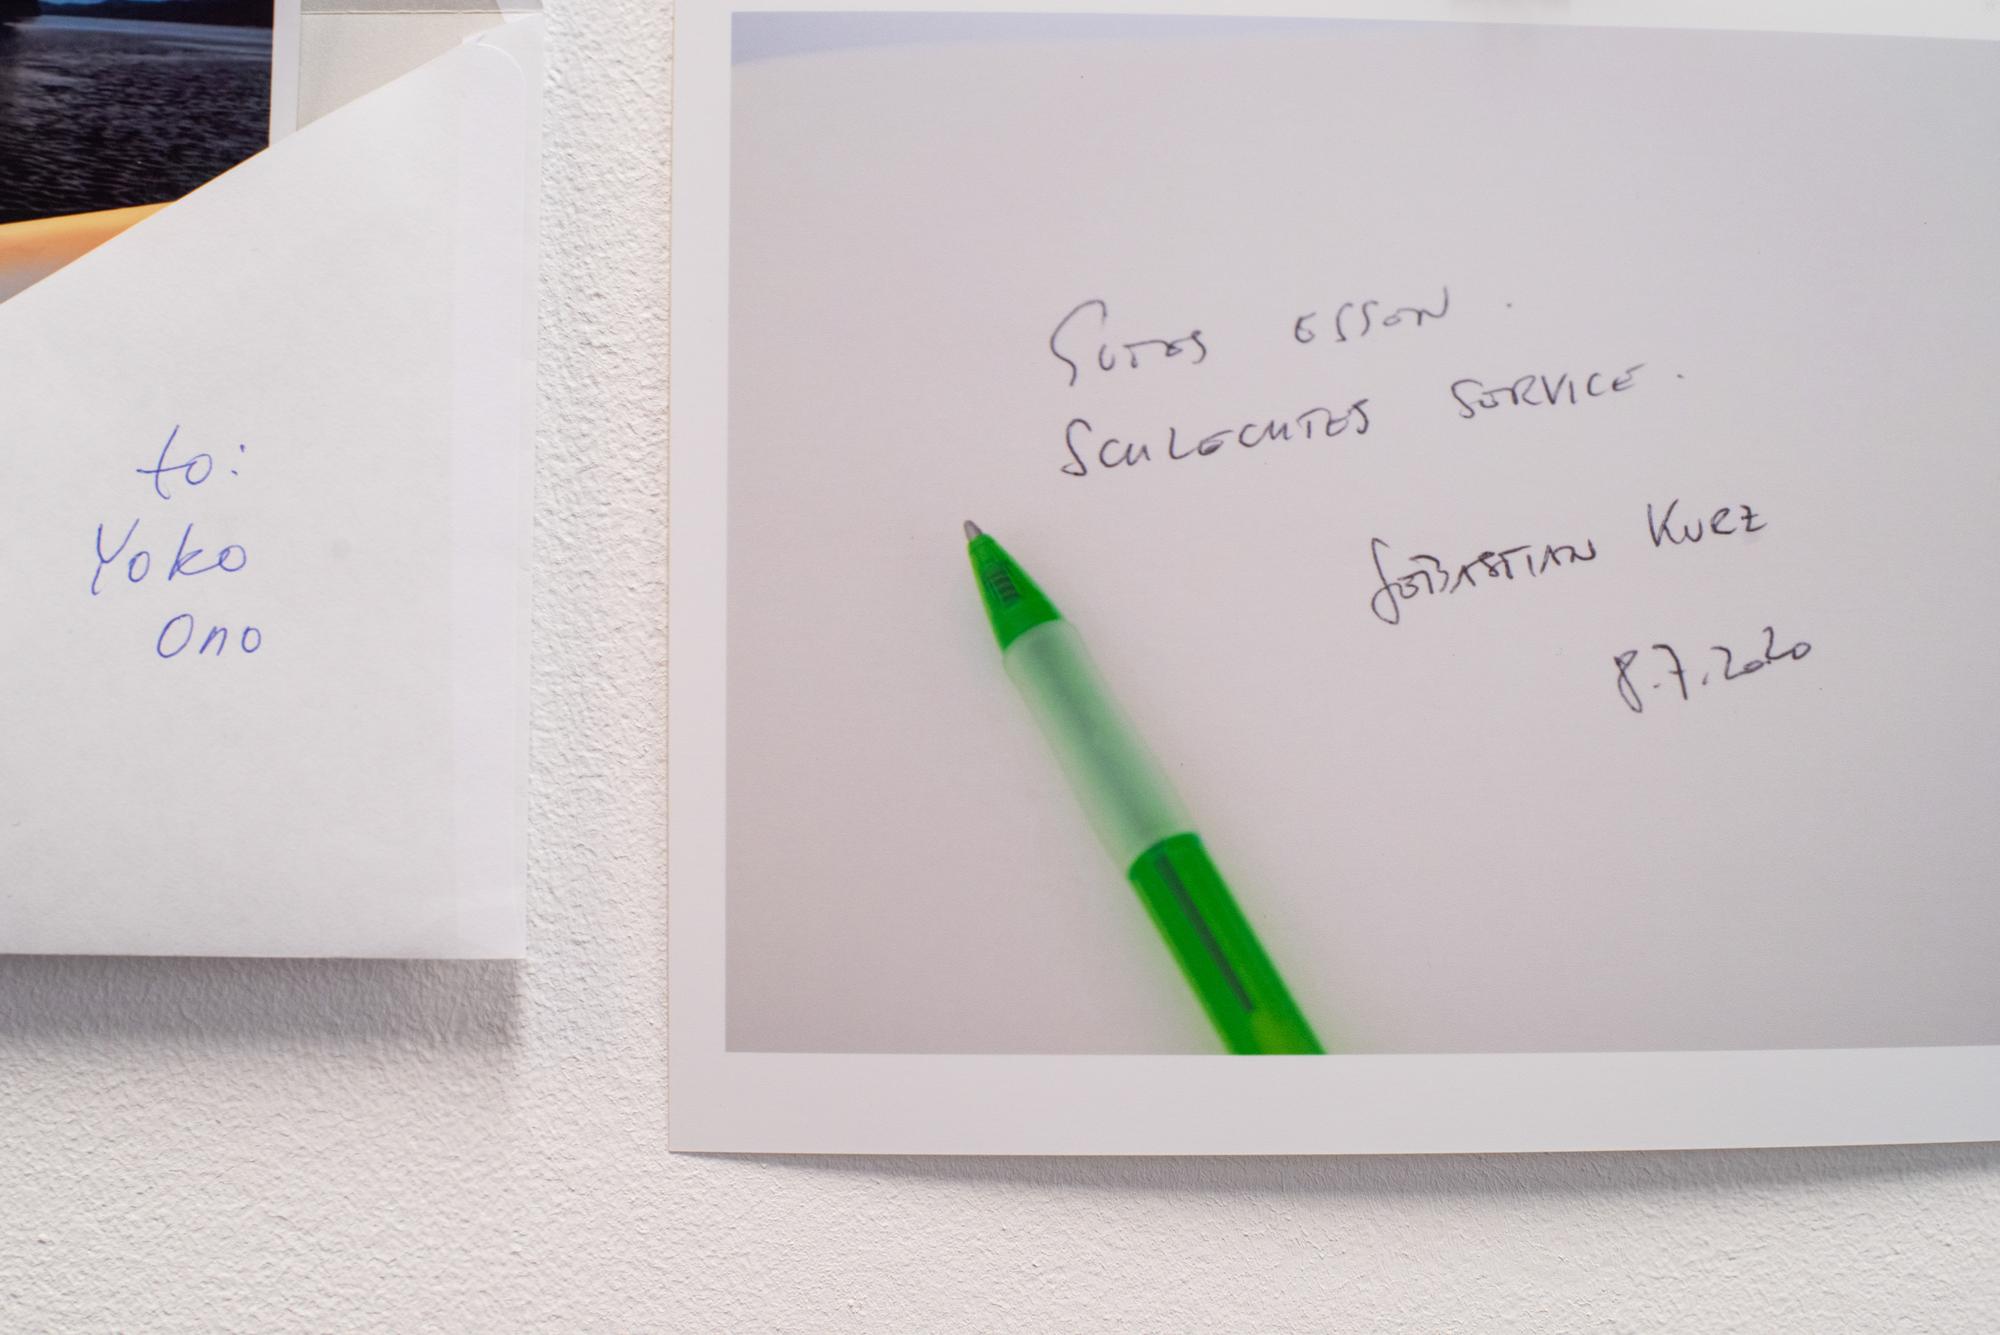 to:
Yoko
Ono
GUTES ESSEN.
SCHLECHTES SERVICE.
SEBASTIAN KURZ
8.7.2020